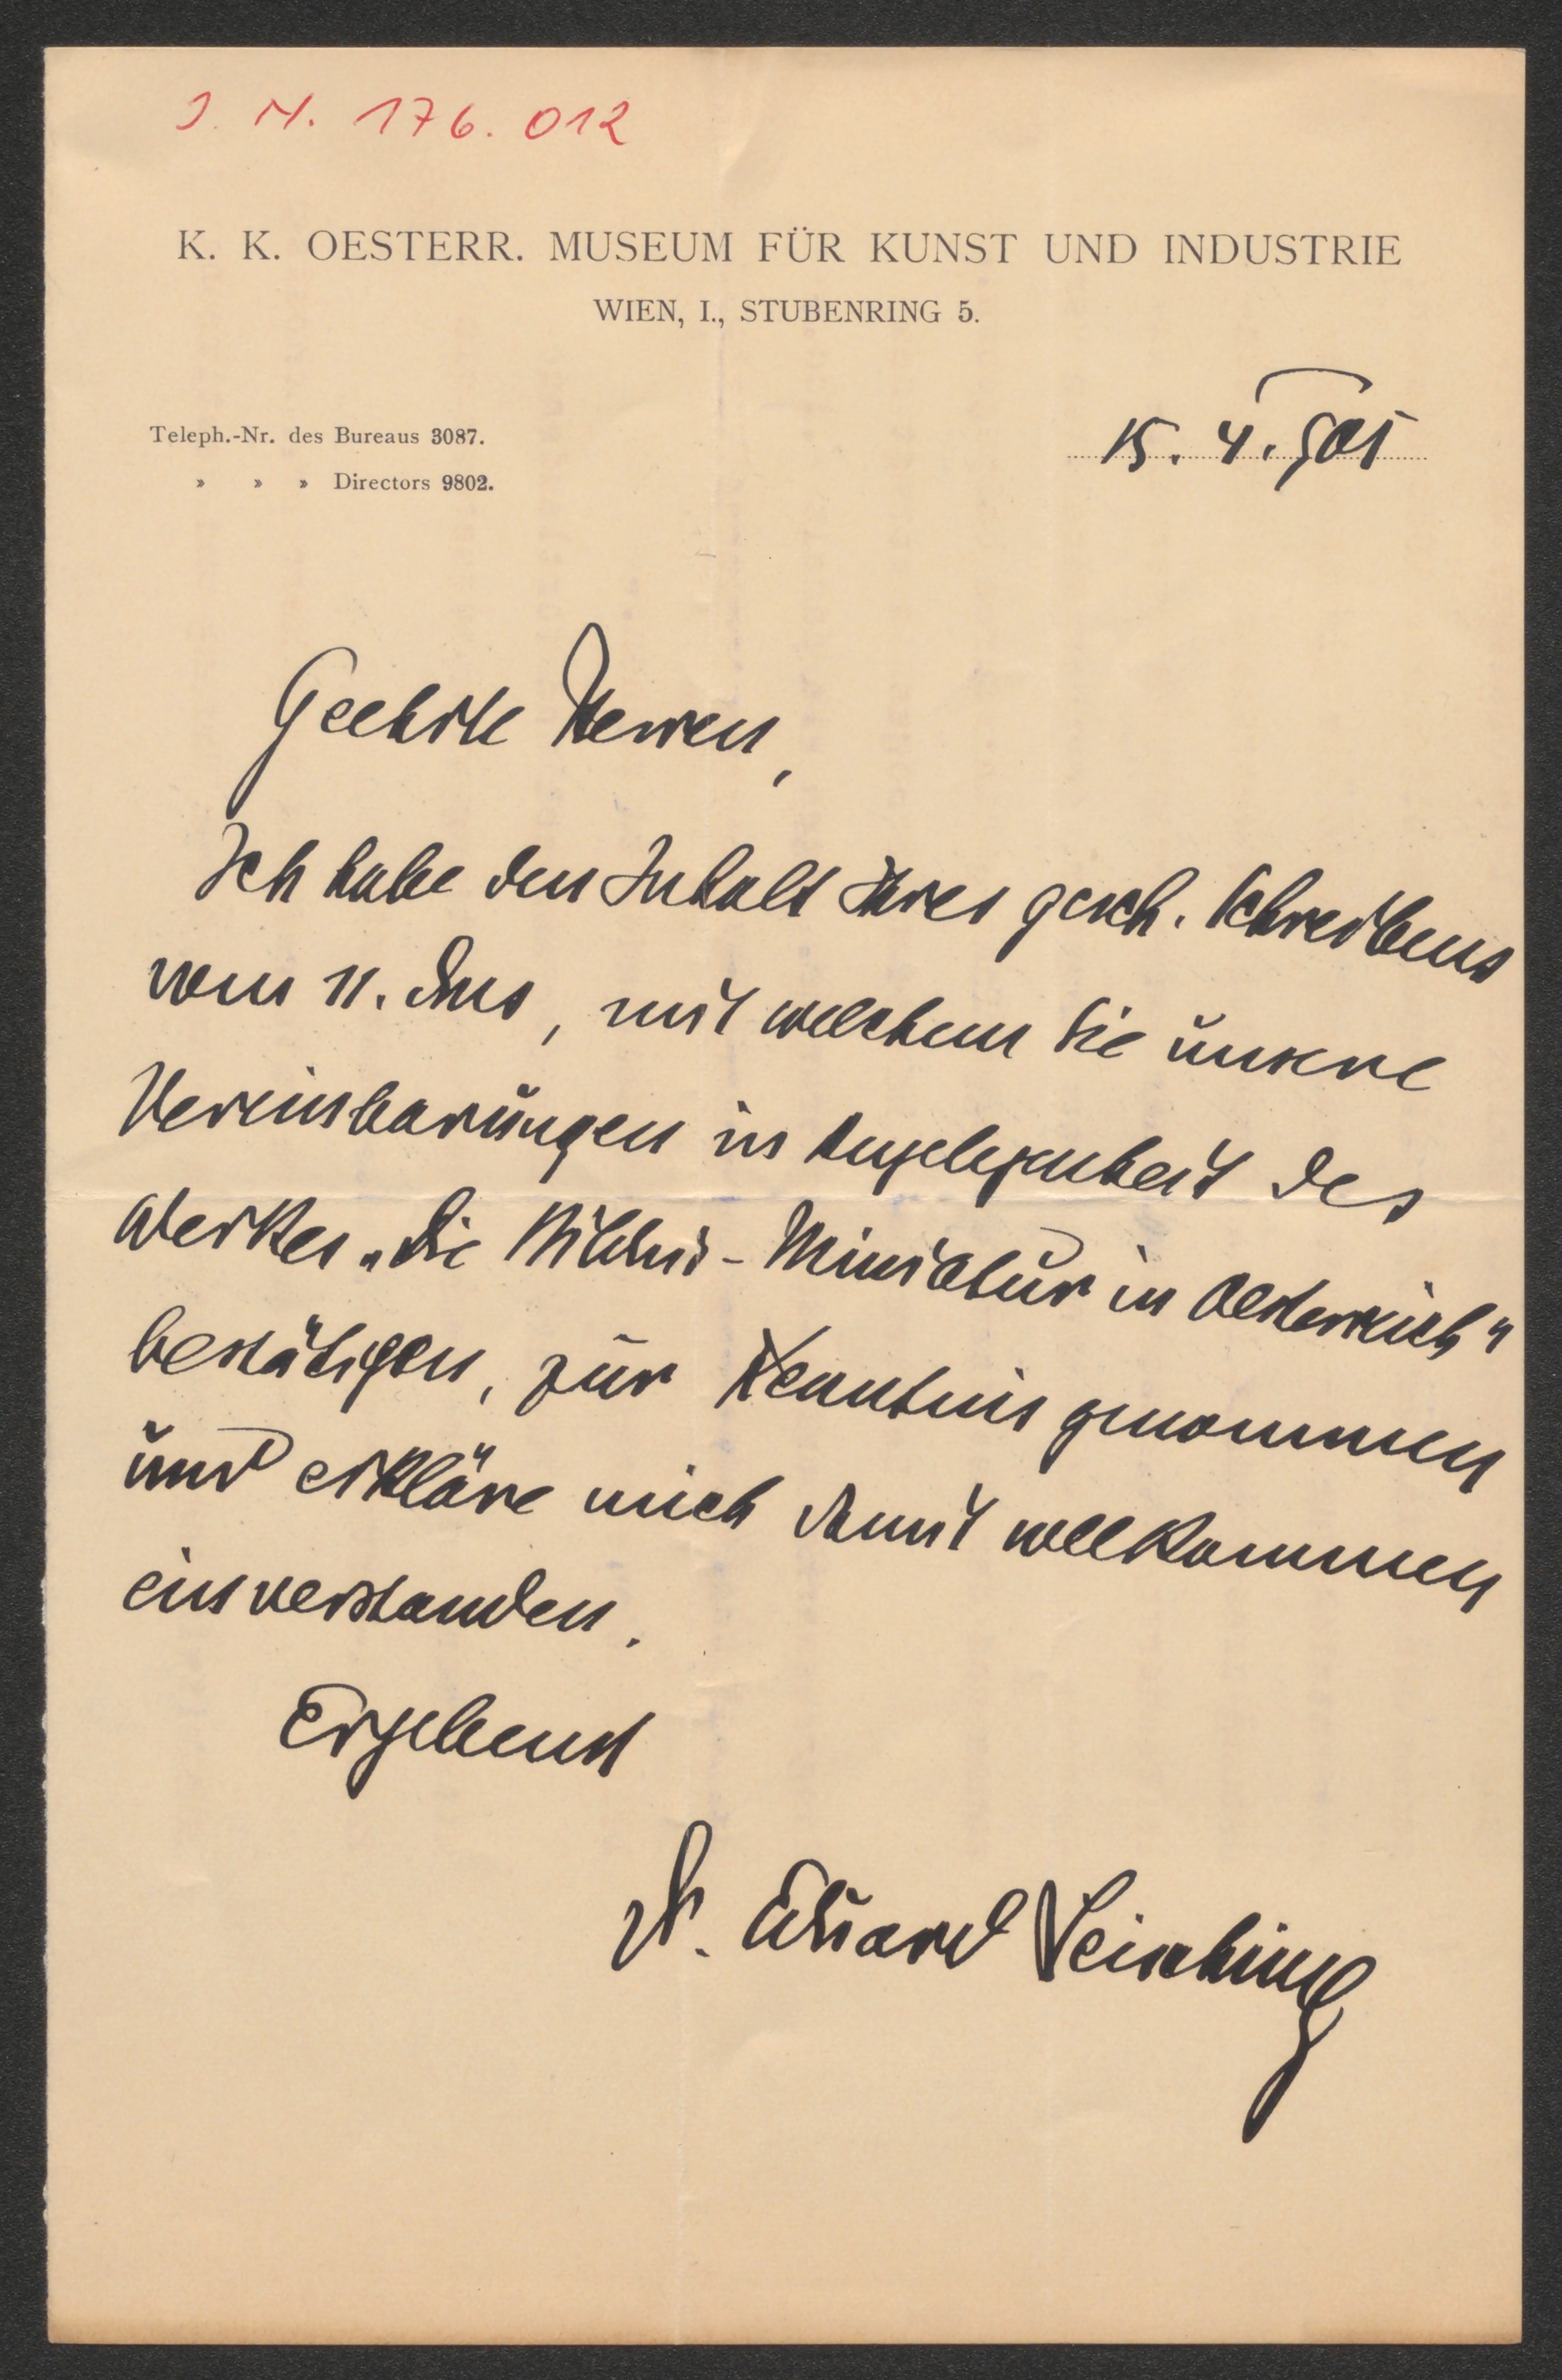 J. N. 176.012
K. K. OESTERR. MUSEUM FÜR KUNST UND INDUSTRIE
WIEN, I., STUBENRING 5.
Teleph.-Nr. des Bureaus 3087.
» » » Directors 9802.
15. 4. 905
Geehrte Herren,
Ich habe den Inhalt Ihres gesch. Schreibens
vom 11. dMs, mit welchem Sie unsere
Vereinbarungen in Angelegenheit des
Werkes „Die Bildnis-Miniatur in Oesterreich"
bestätigen, zur Kenntnis genommen
und erkläre mich damit vollkommen
einverstanden.
Ergebenst
Dr. Eduard Leisching